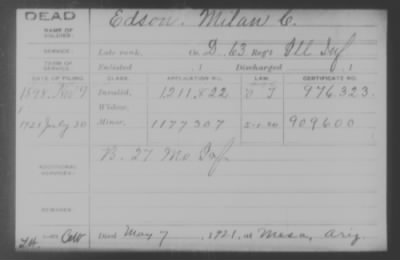 DEAD
NAME OF SOLDIER:
Edson, Milan C.
SERVICE:
Late rank, Co. D, 63 Reg't Ill Inf
TERM OF SERVICE:
Enlisted , 1 Discharged , 1
DATE OF FILING. CLASS. APPLICATION NO. LAW. CERTIFICATE NO.
1898 Nov 7 Invalid, 1211,822 976323.
Widow,
1921 July 30 Minor, 1177307 909600
ADDITIONAL SERVICES:
B. 27 Mo Inf
REMARKS:
Died May 7, 1921, at Mesa, Ariz.